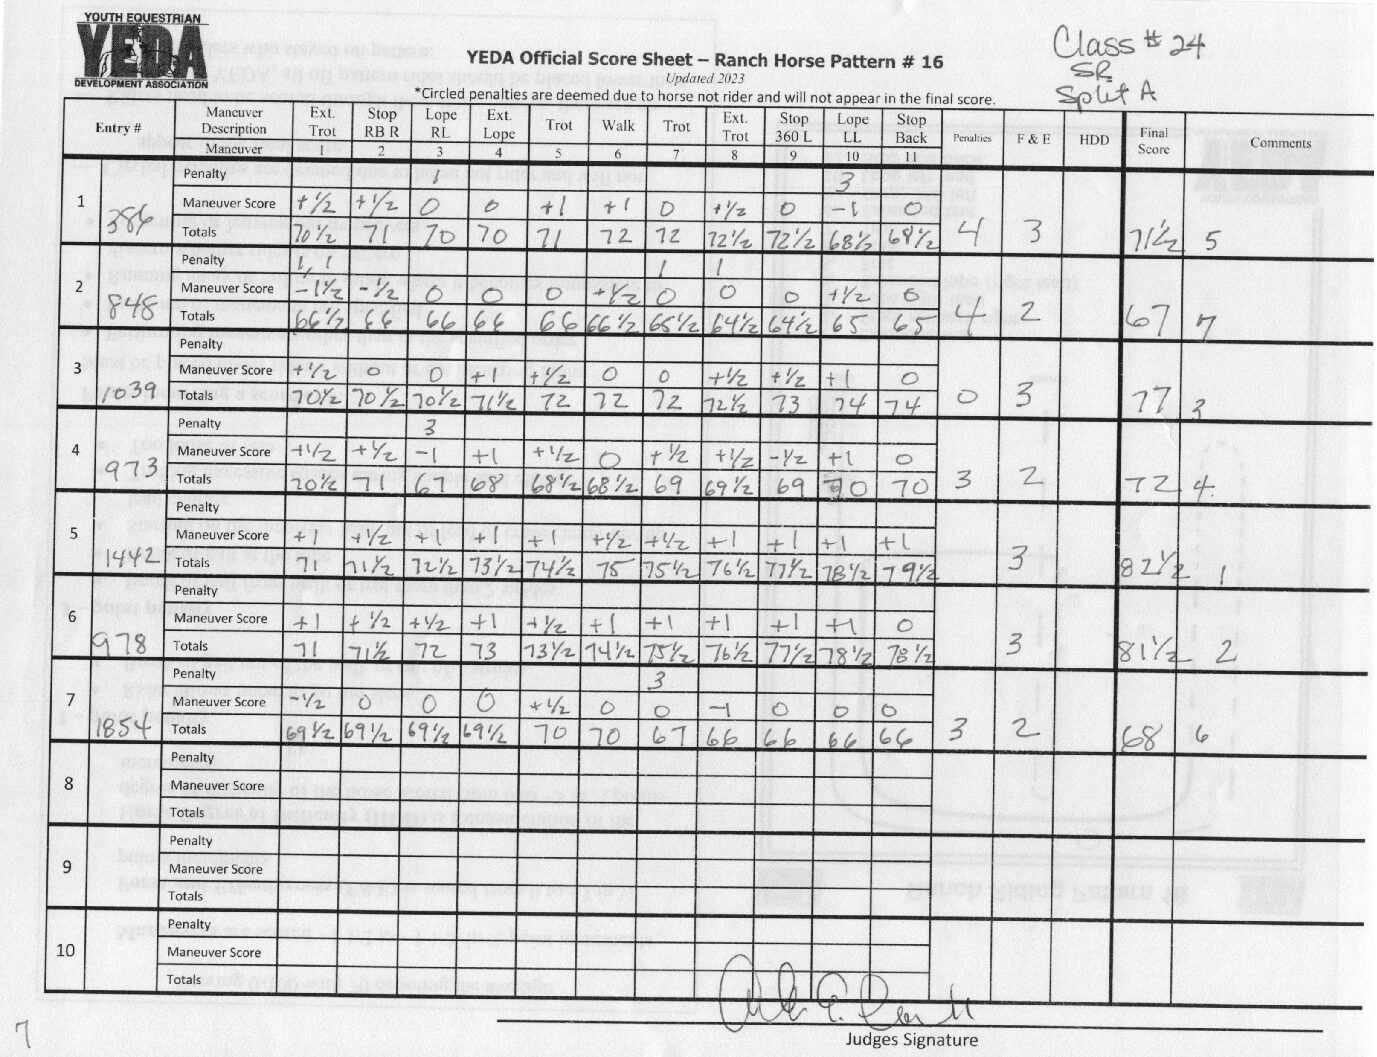 YOUTH EQUESTRIAN
YEDA
DEVELOPMENT ASSOCIATION
Class # 24
SR
Split A
YEDA Official Score Sheet – Ranch Horse Pattern # 16
Updated 2023
*Circled penalties are deemed due to horse not rider and will not appear in the final score.
Entry # Maneuver Description Ext. Trot Stop RB R Lope RL Ext. Lope Trot Walk Trot Ext. Trot Stop 360 L Lope LL Stop Back Penalties F & E HDD Final Score Comments
Maneuver 1 2 3 4 5 6 7 8 9 10 11
1 386
Penalty 1 3
Maneuver Score +1/2 +1/2 0 0 +1 +1 0 +1/2 0 -1 0
Totals 70 1/2 71 70 70 71 72 72 72 1/2 72 1/2 68 1/2 68 1/2 4 3 71 1/2 5
2 848
Penalty 1/1 1 1
Maneuver Score -1 1/2 -1/2 0 0 0 +1/2 0 0 0 +1/2 0
Totals 66 1/2 66 66 66 66 66 1/2 65 1/2 64 1/2 64 1/2 65 65 4 2 67 7
3 1039
Penalty
Maneuver Score +1/2 0 0 +1 +1/2 0 0 +1/2 +1/2 +1 0
Totals 70 1/2 70 1/2 70 1/2 71 1/2 72 72 72 72 1/2 73 74 74 0 3 77 3
4 973
Penalty 3
Maneuver Score +1/2 +1/2 -1 +1 +1/2 0 +1/2 +1/2 -1/2 +1 0
Totals 70 1/2 71 67 68 68 1/2 68 1/2 69 69 1/2 69 70 70 3 2 72 4
5 1442
Penalty
Maneuver Score +1 +1/2 +1 +1 +1 +1/2 +1/2 +1 +1 +1 +1
Totals 71 71 1/2 72 1/2 73 1/2 74 1/2 75 75 1/2 76 1/2 77 1/2 78 1/2 79 1/2 3 82 1/2 1
6 978
Penalty
Maneuver Score +1 +1/2 +1/2 +1 +1/2 +1 +1 +1 +1 +1 0
Totals 71 71 1/2 72 73 73 1/2 74 1/2 75 1/2 76 1/2 77 1/2 78 1/2 78 1/2 3 81 1/2 2
7 1854
Penalty 3
Maneuver Score -1/2 0 0 0 +1/2 0 0 -1 0 0 0
Totals 69 1/2 69 1/2 69 1/2 69 1/2 70 70 67 66 66 66 66 3 2 68 6
8
Penalty
Maneuver Score
Totals
9
Penalty
Maneuver Score
Totals
10
Penalty
Maneuver Score
Totals
7
Judges Signature